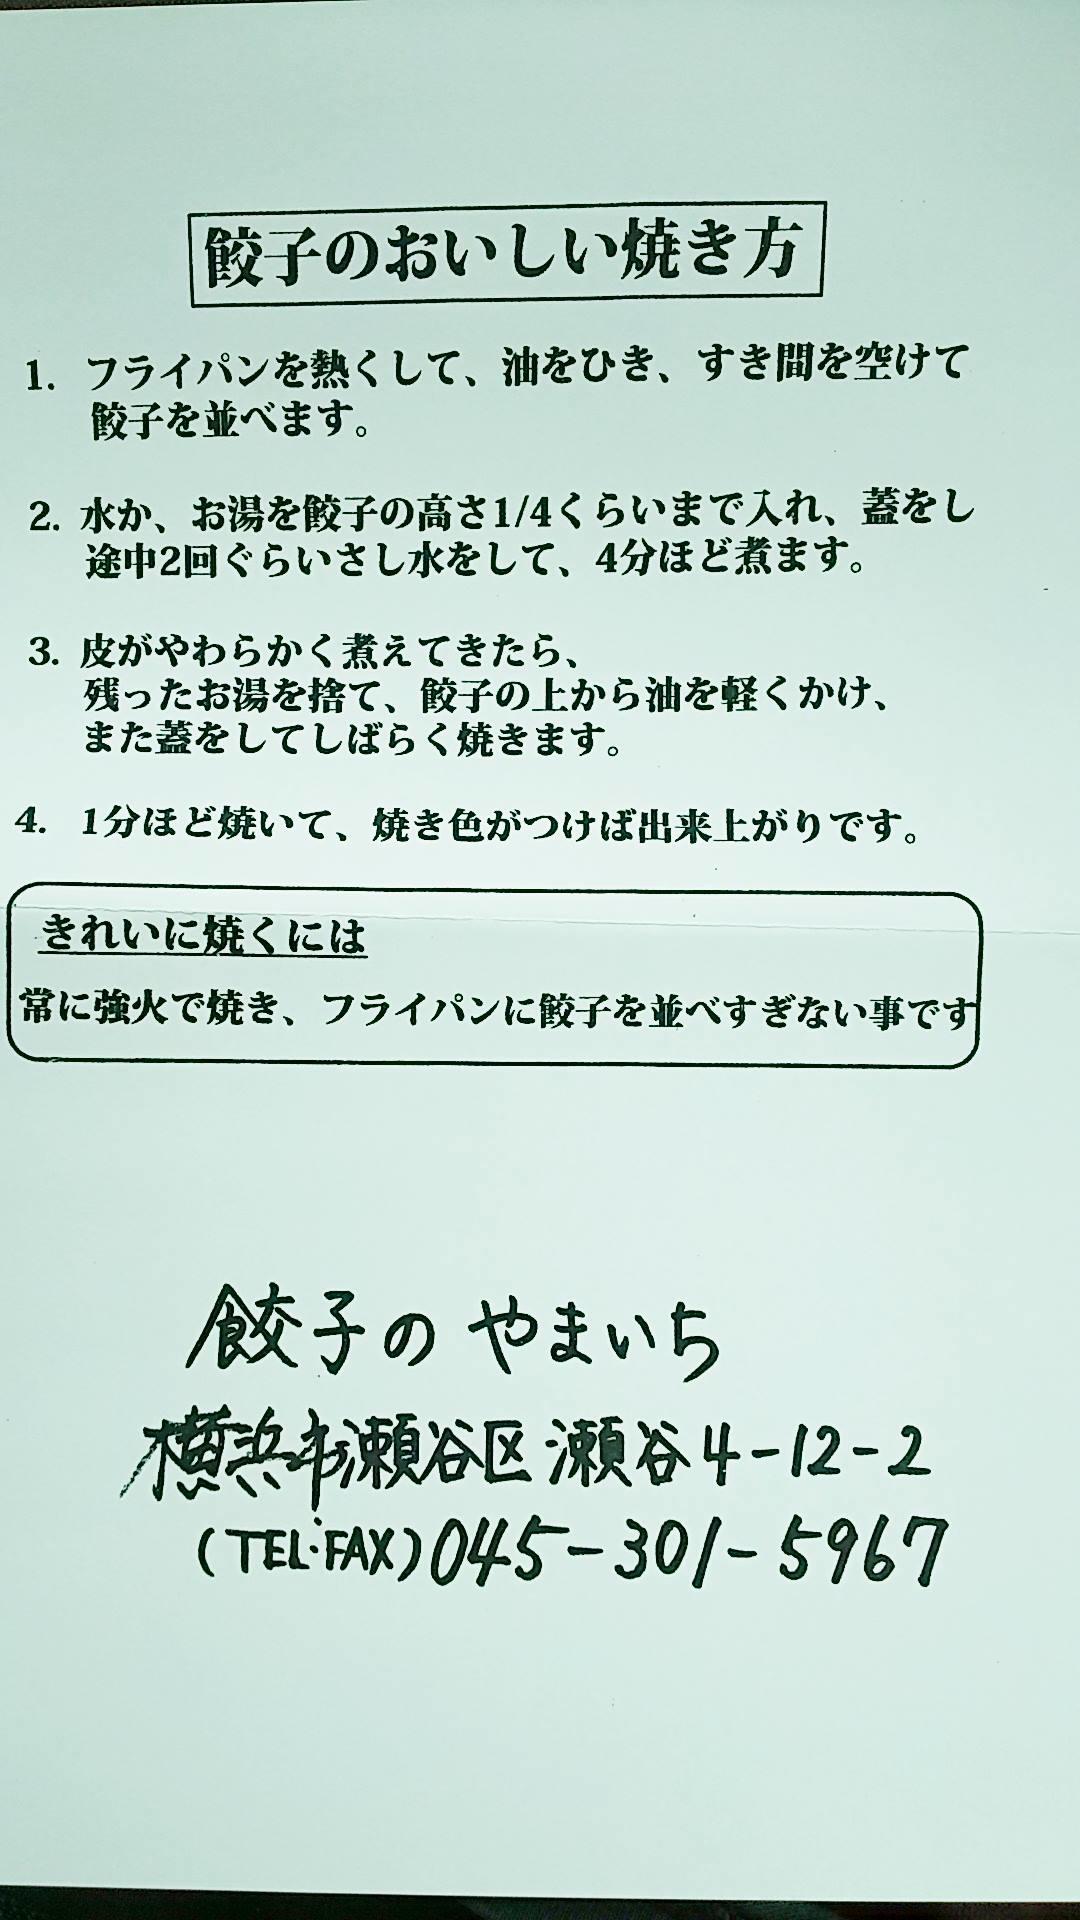 餃子のおいしい焼き方
1. フライパンを熱くして、油をひき、すき間を空けて
餃子を並べます。
2. 水か、お湯を餃子の高さ1/4くらいまで入れ、蓋をし
途中2回ぐらいさし水をして、4分ほど煮ます。
3. 皮がやわらかく煮えてきたら、
残ったお湯を捨て、餃子の上から油を軽くかけ、
また蓋をしてしばらく焼きます。
4. 1分ほど焼いて、焼き色がつけば出来上がりです。
きれいに焼くには
常に強火で焼き、フライパンに餃子を並べすぎない事です
餃子の やまいち
横浜市瀬谷区瀬谷4-12-2
(TEL・FAX)045-301-5967